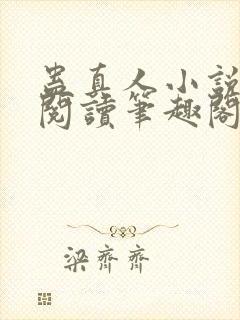 蛊真人小說
閱讀筆趣閣
梁齊齊